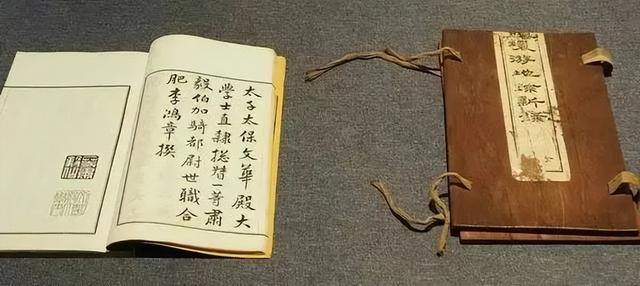 太子太保文華殿大
學士直隸總督一等肅
毅伯加騎都尉世職合
肥李鴻章撰
環游地球新錄